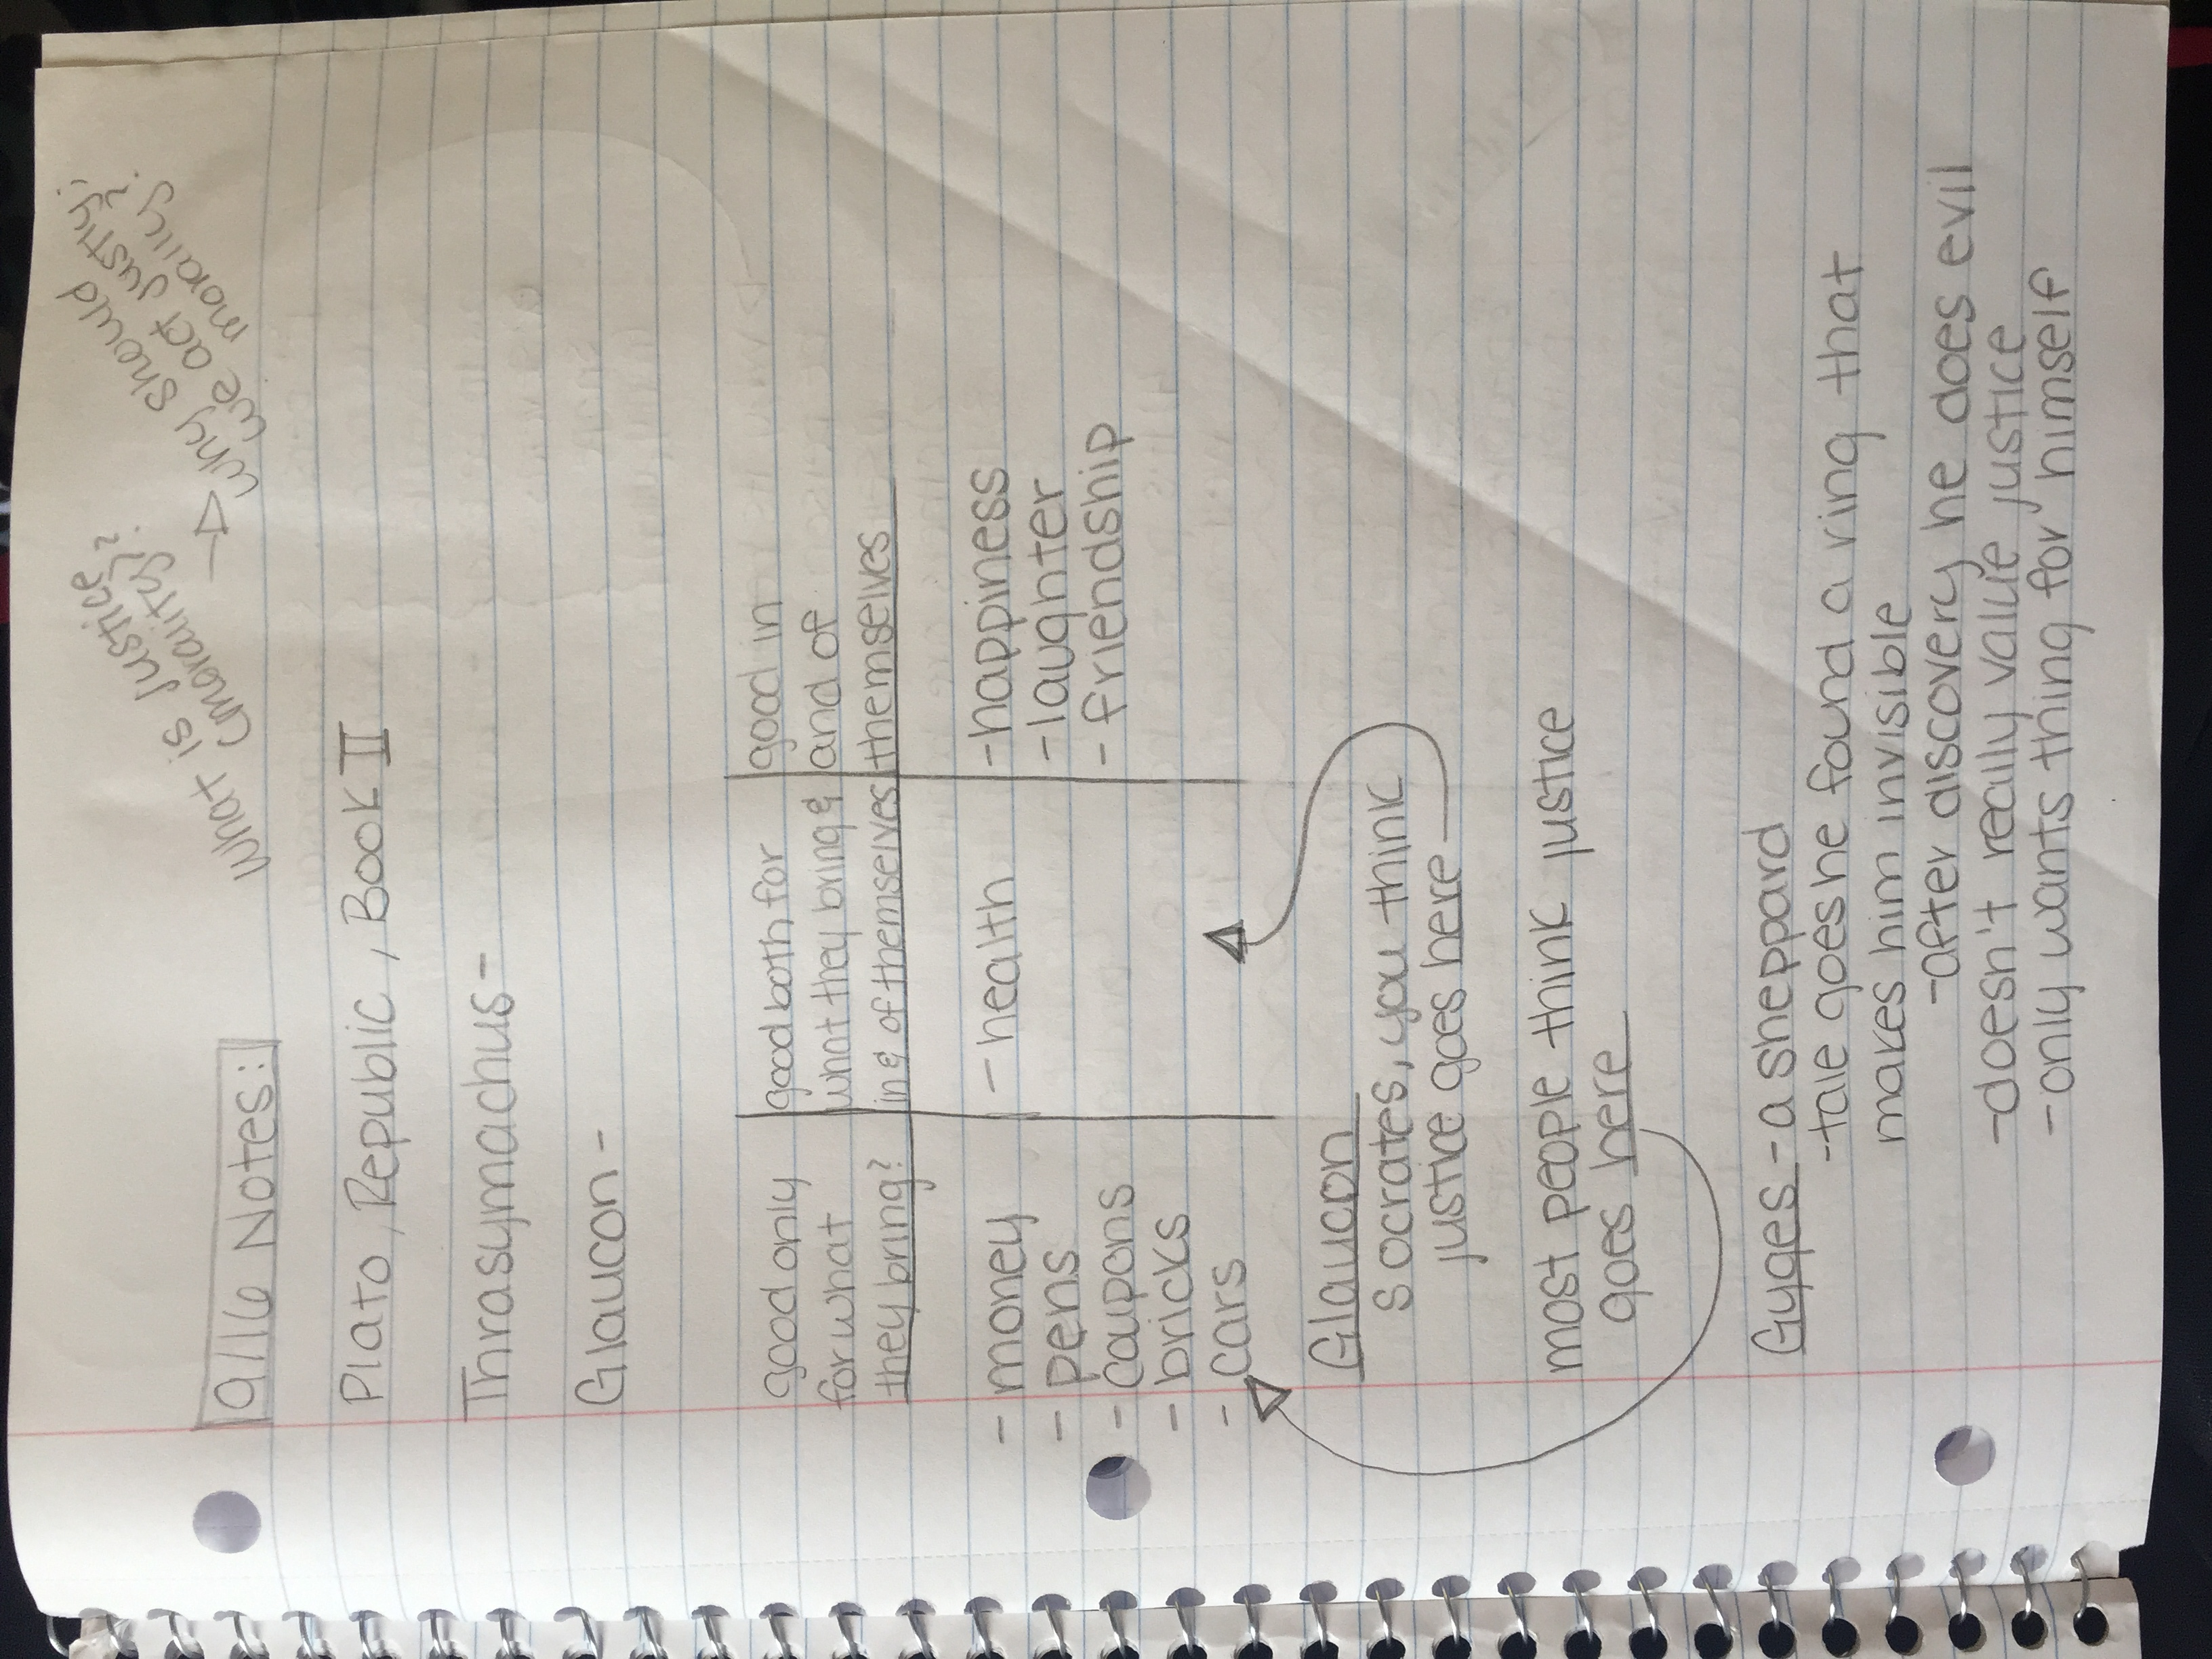 9/16 Notes:
What is Justice?
(morality)?
→ Why should
we act justly?
morally?
Plato, Republic, Book II
Thrasymachus-
Glaucon-
good only
for what
they bring?
good both for
what they bring &
in & of themselves
good in
and of
themselves
- money
- pens
- coupons
- bricks
- cars
- health
-happiness
-laughter
-friendship
Glaucon
socrates, you think
justice goes here
most people think justice
goes here
Gyges - a sheppard
-tale goes he found a ring that
makes him invisible
-after discovery he does evil
-doesn't really value justice
-only wants thing for himself